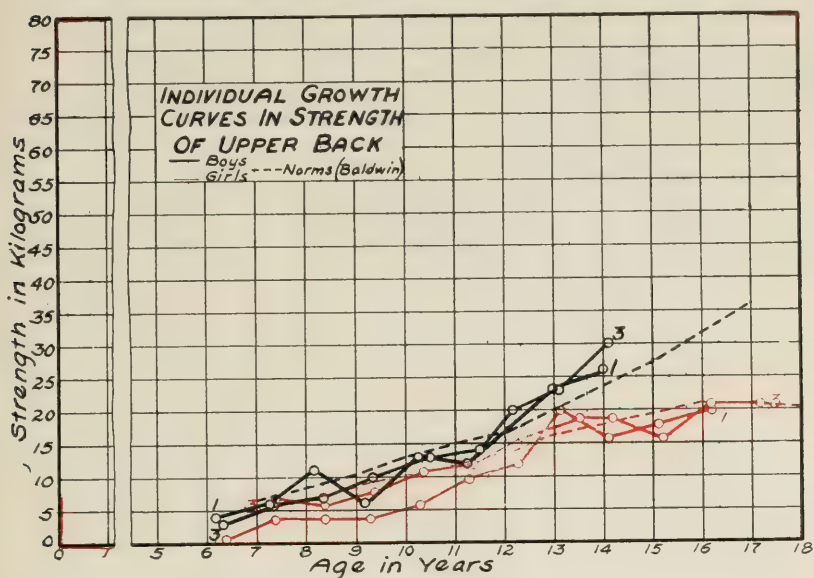 80
75
70
65
60
55
50
45
40
35
30
25
20
15
10
5
0
Strength in Kilograms
INDIVIDUAL GROWTH
CURVES IN STRENGTH
OF UPPER BACK
Boys
Girls --- Norms (Baldwin)
3
1
3
1
1
3
3
0 1 5 6 7 8 9 10 11 12 13 14 15 16 17 18
Age in Years